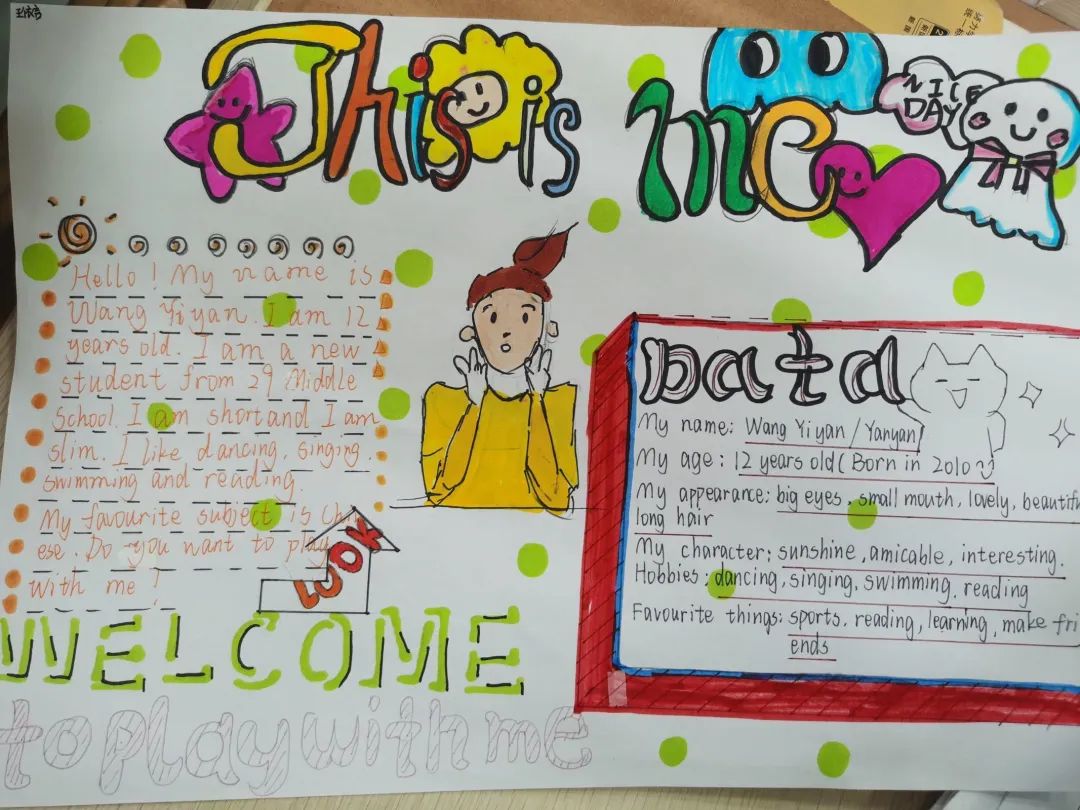 This is me
NICE
DAY
Hello! My name is
Wang Yiyan. I am 12
years old. I am a new
student from 29 Middle
School. I am short and I am
slim. I like dancing, singing,
swimming and reading.
My favourite subject is Chin
ese. Do you want to play
with me?
LOOK
WELCOME
to play with me
Data
My name: Wang Yiyan/Yanyan
My age: 12 years old( Born in 2010
My appearance: big eyes, small mouth, lovely, beautiful
long hair
My character: sunshine, amicable, interesting.
Hobbies: dancing, singing, swimming, reading
Favourite things: sports, reading, learning, make fri
ends